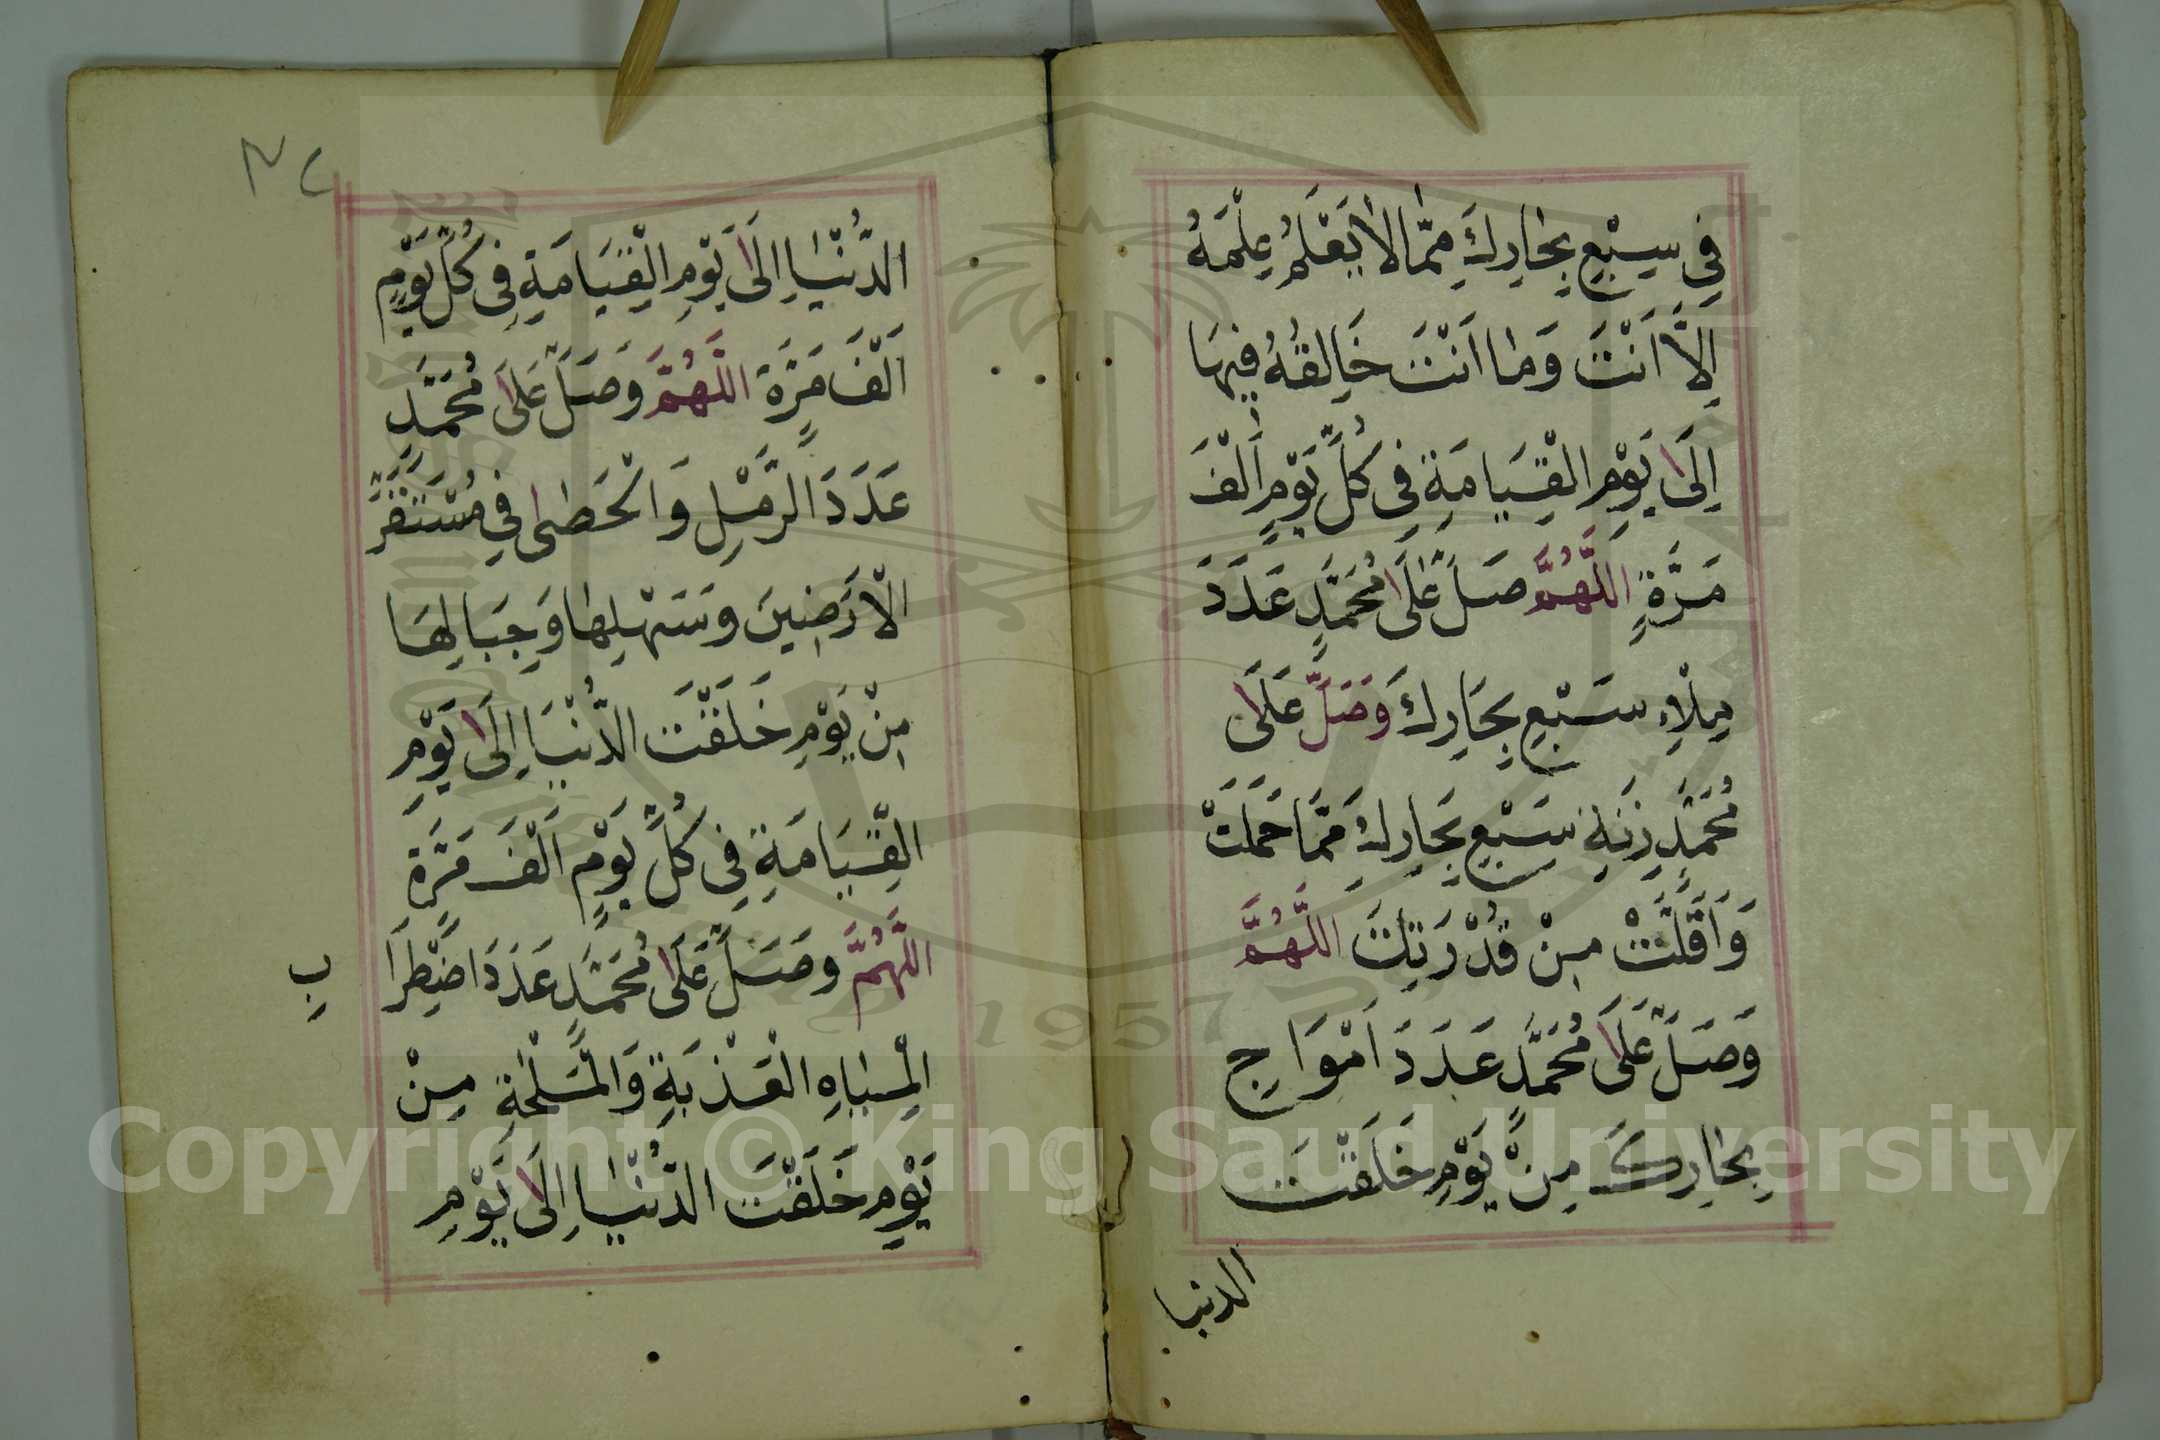 فِي سَبْعِ بِحَارِكَ مِمَّا لَا يَعْلَمُ عِلْمَهُ
اِلَّا اَنْتَ وَمَا اَنْتَ خَالِقُهُ فِيهَا
اِلَى يَوْمِ الْقِيَامَةِ فِي كُلِّ يَوْمٍ اَلْفَ
مَرَّةٍ اللَّهُمَّ صَلِّ عَلَى مُحَمَّدٍ عَدَدَ
مِلْاءِ سَبْعِ بِحَارِكَ وَصَلِّ عَلَى
مُحَمَّدٍ زِنَةِ سَبْعِ بِحَارِكَ مِمَّا حَمَلَتْ
وَاَقَلَّتْ مِنْ قُدْرَتِكَ اللَّهُمَّ
وَصَلِّ عَلَى مُحَمَّدٍ عَدَدَ اَمْوَاجِ
بِحَارِكَ مِنْ يَوْمِ خَلَقْتَ
الدنيا
٢٤
الدُّنْيَا اِلَى يَوْمِ الْقِيَامَةِ فِي كُلِّ يَوْمٍ
اَلْفَ مَرَّةٍ اللَّهُمَّ وَصَلِّ عَلَى مُحَمَّدٍ
عَدَدَ الرَّمْلِ وَالْحَصٰى فِي مُسْتَقَرِّ
الْاَرَضِينَ وَسَهْلِهَا وَجِبَالِهَا
مِنْ يَوْمِ خَلَقْتَ الدُّنْيَا اِلَى يَوْمِ
الْقِيَامَةِ فِي كُلِّ يَوْمٍ اَلْفَ مَرَّةٍ
اللَّهُمَّ وَصَلِّ عَلَى مُحَمَّدٍ عَدَدَ اضْطِرَا
بِ
الْمِيَاهِ الْعَذْبَةِ وَالْمَلْحَةِ مِنْ
يَوْمِ خَلَقْتَ الدُّنْيَا اِلَى يَوْمِ
Copyright © King Saud University
1957